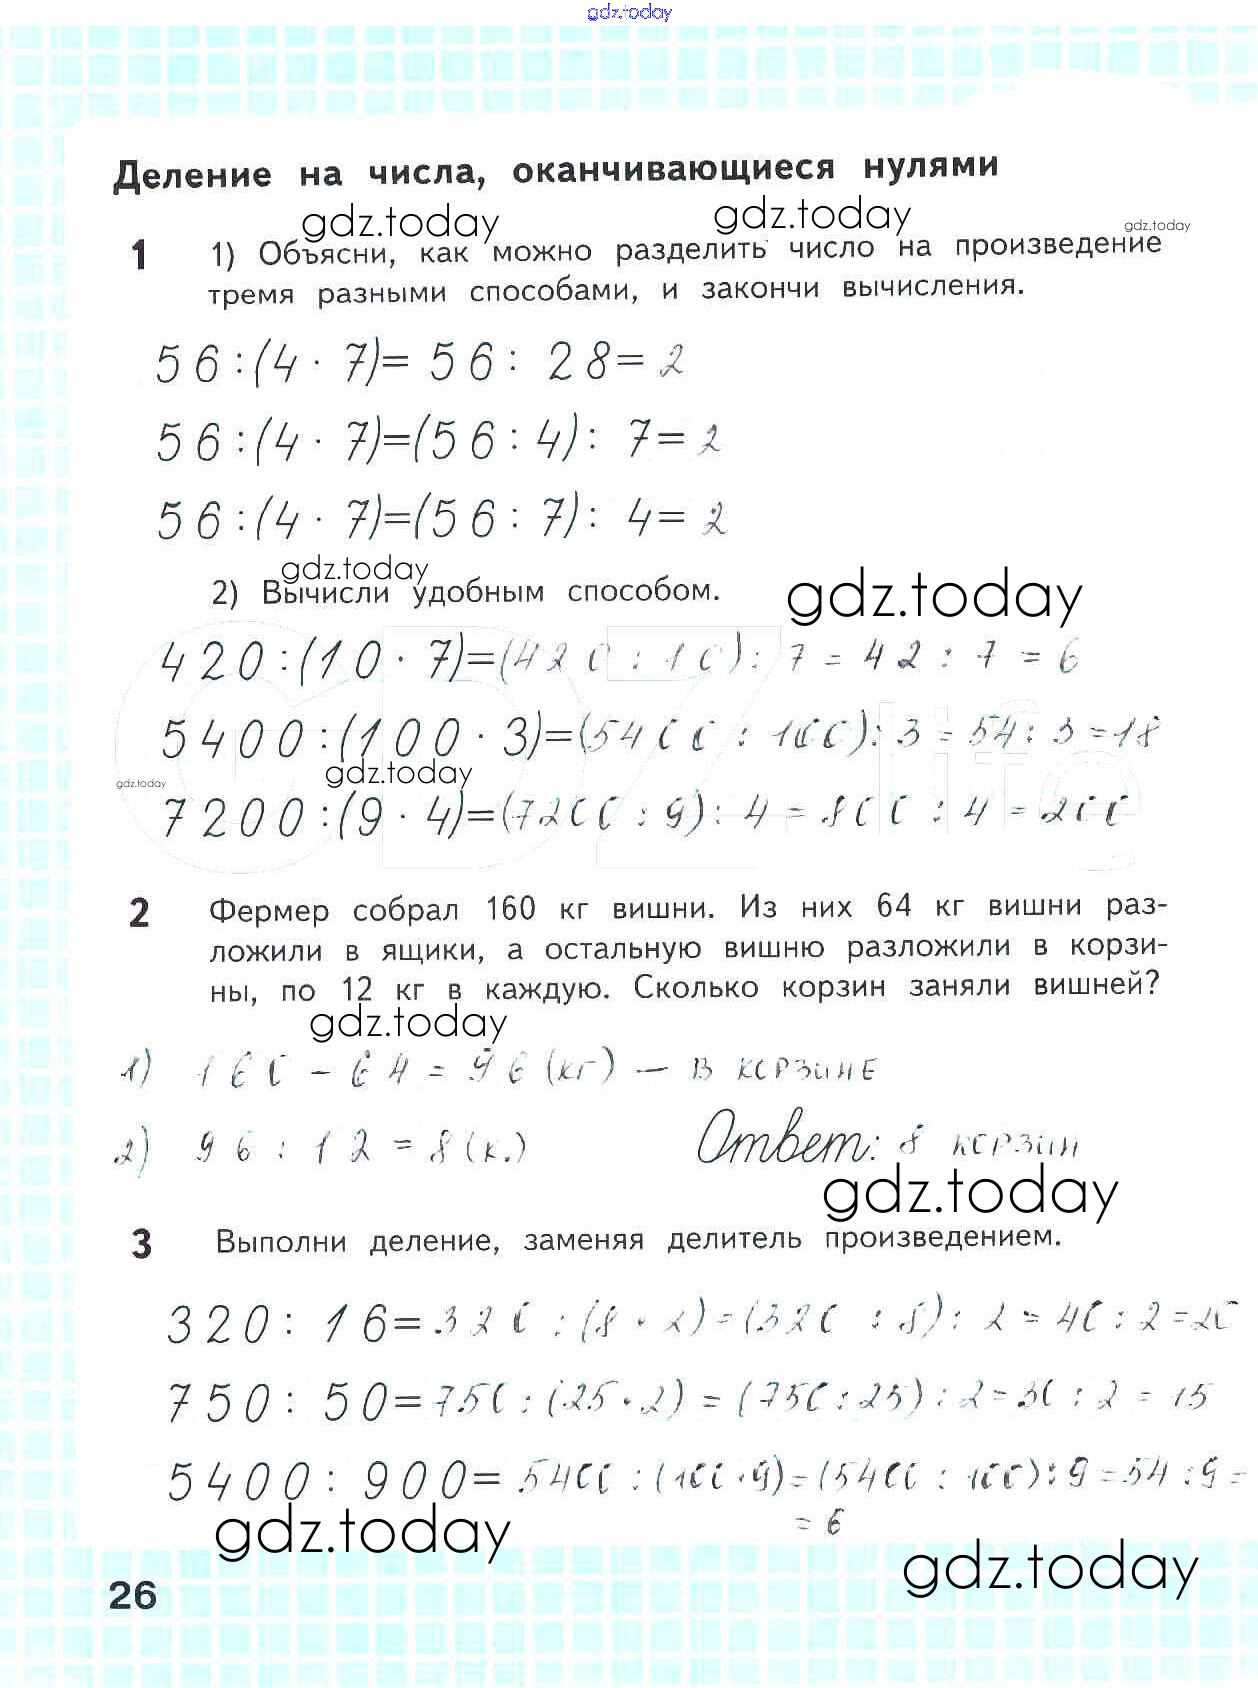 gdz.today
Деление на числа, оканчивающиеся нулями
gdz.today gdz.today gdz.today
1 1) Объясни, как можно разделить число на произведение
тремя разными способами, и закончи вычисления.
56:(4·7)=56:28=2
56:(4·7)=(56:4):7=2
56:(4·7)=(56:7):4=2
gdz.today
2) Вычисли удобным способом.
gdz.today
420:(10·7)=(420:10):7=42:7=6
5400:(100·3)=(5400:100):3=54:3=18
gdz.today gdz.today
7200:(9·4)=(7200:9):4=800:4=200
GDZ life
2 Фермер собрал 160 кг вишни. Из них 64 кг вишни раз-
ложили в ящики, а остальную вишню разложили в корзи-
ны, по 12 кг в каждую. Сколько корзин заняли вишней?
gdz.today
1) 160-64=96(кг) — в корзине
2) 96:12=8(к.) Ответ: 8 корзин
gdz.today
3 Выполни деление, заменяя делитель произведением.
320:16=320:(8·2)=(320:8):2=40:2=20
750:50=750:(25·2)=(750:25):2=30:2=15
5400:900=5400:(100·9)=(5400:100):9=54:9=
=6
gdz.today
gdz.today
26